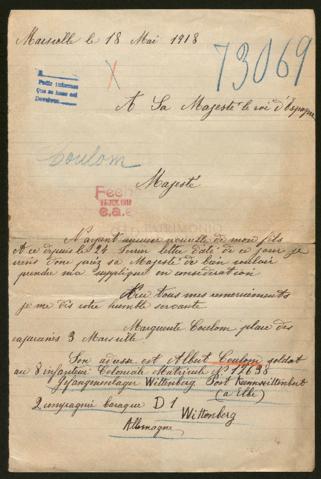 Marseille le 18 Mai 1918
73069
X
Pedir informes
Que se hace así
Devolver
A Sa Majesté le roi d'Espagne
Coulom
Majesté
Fech
e.a.e
N'ayant aucune nouvelle de mon fils
A ce depuis le 24 lettre daté de ce jour je
viens donc prier sa Majesté de bien vouloir
prendre ma supplique en considération
Avec tous mes remerciements
je me dis votre humble servante
Marguerite Coulom place des
capucines 3 Marseille
Son adresse est Albert Coulom soldat
au 8 infanterie Coloniale Matricule No 17638
Gefangenenlager Wittenberg
(a Elbe)
2 compagnie baraque D 1
Wittenberg
Allemagne